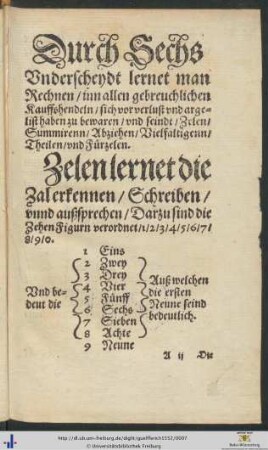 Durch Sechs
Vnderscheydt lernet man
Rechnen / inn allen gebreuchlichen
Kauffshendeln / sich vor verlust vnd arge-
list haben zu bewaren / vnd seindt / Zelen /
Summirenn / Abziehen / Vielfaltigenn /
Theilen / vnd Fürzelen.
Zelen lernet die
Zal erkennen / Schreiben /
vnnd außsprechen / Darzu sind die
Zehen Figurn verordnet / 1 / 2 / 3 / 4 / 5 / 6 / 7 /
8 / 9 / 0.
1 Eins
2 Zwey
3 Drey
4 Vier
5 Fünff
6 Sechs
7 Sieben
8 Achte
9 Neune
Vnd be-
deut die
Auß welchen
die ersten
Neune seind
bedeutlich.
A ij Die
http://dl.ub.uni-freiburg.de/diglit/
© Universitätsbibliothek Freiburg